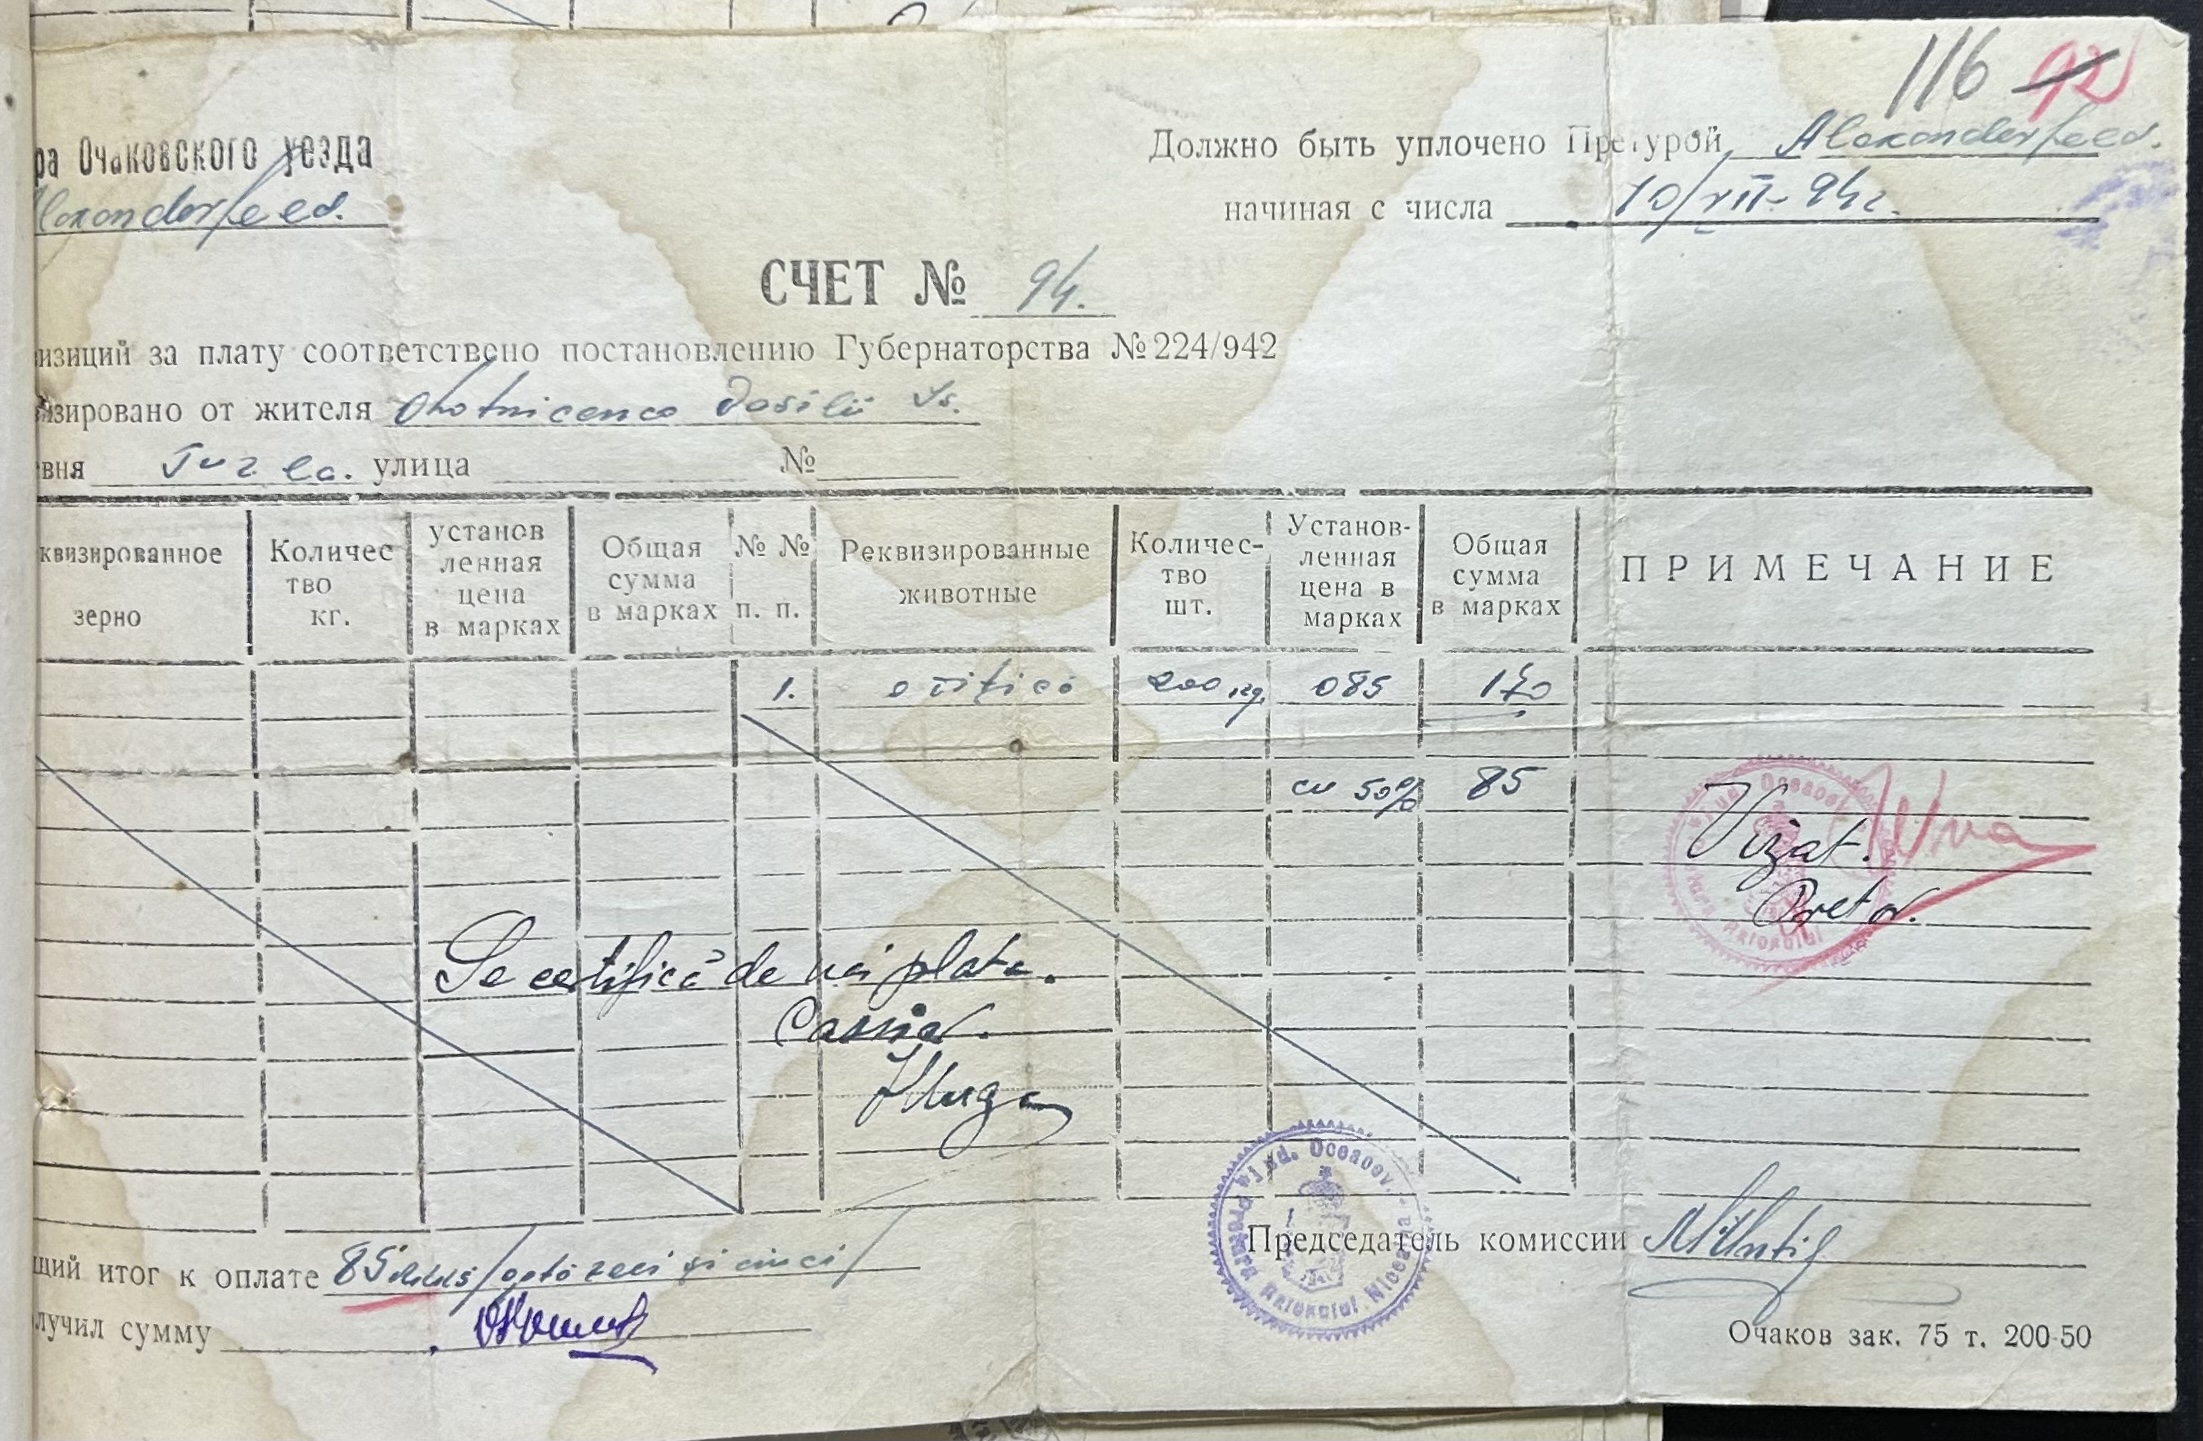 116 92
ра Очаковского уезда
Должно быть уплочено Претурой Alexanderfeld.
lexanderfeld.
начиная с числа 10/VII-942.
СЧЕТ № 94.
изиций за плату соответствено постановлению Губернаторства № 224/942
изировано от жителя Ohotnicenco Vasilii Is.
вня Tuzla. улица №
квизированное зерно
Количес тво кг.
установ ленная цена в марках
Общая сумма в марках
№ № п. п.
Реквизированные животные
Количес- тво шт.
Установ- ленная цена в марках
Общая сумма в марках
ПРИМЕЧАНИЕ
1. 200 кg. 085 170
cu 50% 85
Vizat.
Pretor.
Se certifică de noi plata.
Cassier.
щий итог к оплате 85 /optzeci și cinci/
Председатель комиссии
лучил сумму
Pretura Raionului Jud. Oceacov
Очаков зак. 75 т. 200-50